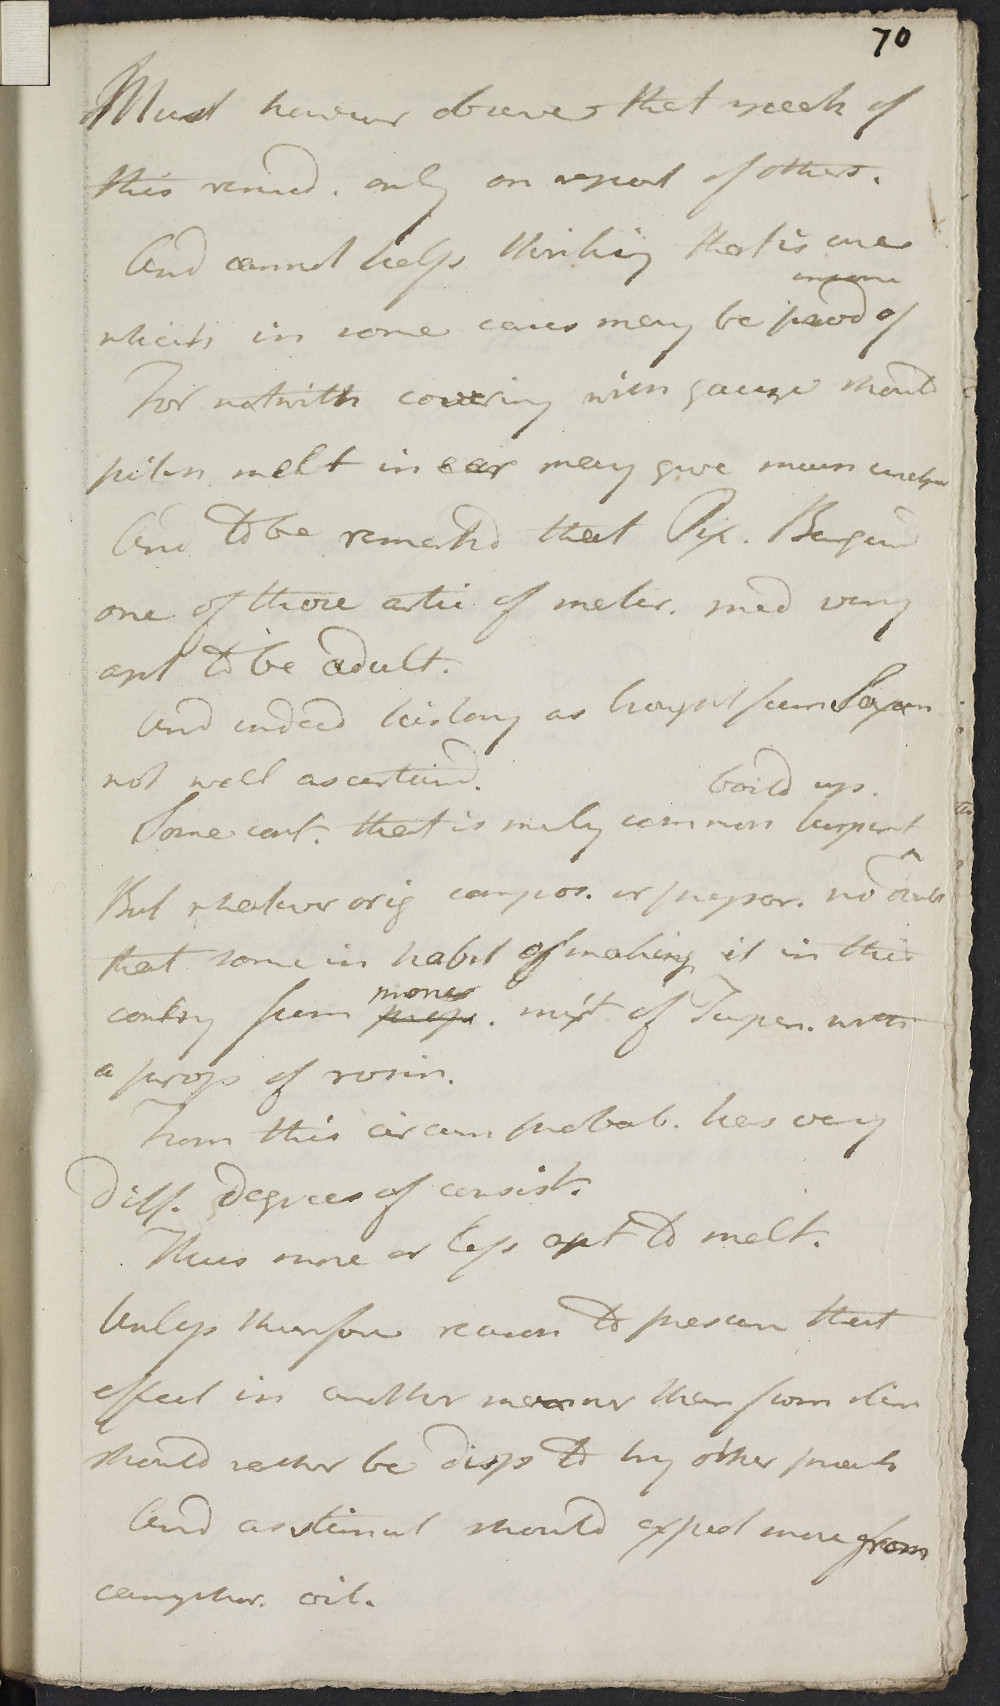 70
Must however observe that speak of
this remed. only on report of others.
And cannot help thinking that is one
which in some cases may be prod of
For notwith covering with gauze should
pitch melt in ear may give much
And to be remarkd that Pix. Burgund
one of those artic of mater. med very
apt to be adult.
And indeed history as brought from Saxon
not well ascertaind.
boild up.
Some cont. that is merely common turpent
^
But whatever orig compos. or prepar. no doubt
that some in habit of making it in this
contry from . mixt of Turpen. with
a prop of rosin.
From this circum probab. has very
Diff. Degrees of consist.
Thus more or less apt to melt.
Unless therefore reason to presum that
effect in another manner than from stim
should rather be disp to try other
And as stimul should expect more from
camphor. oil.